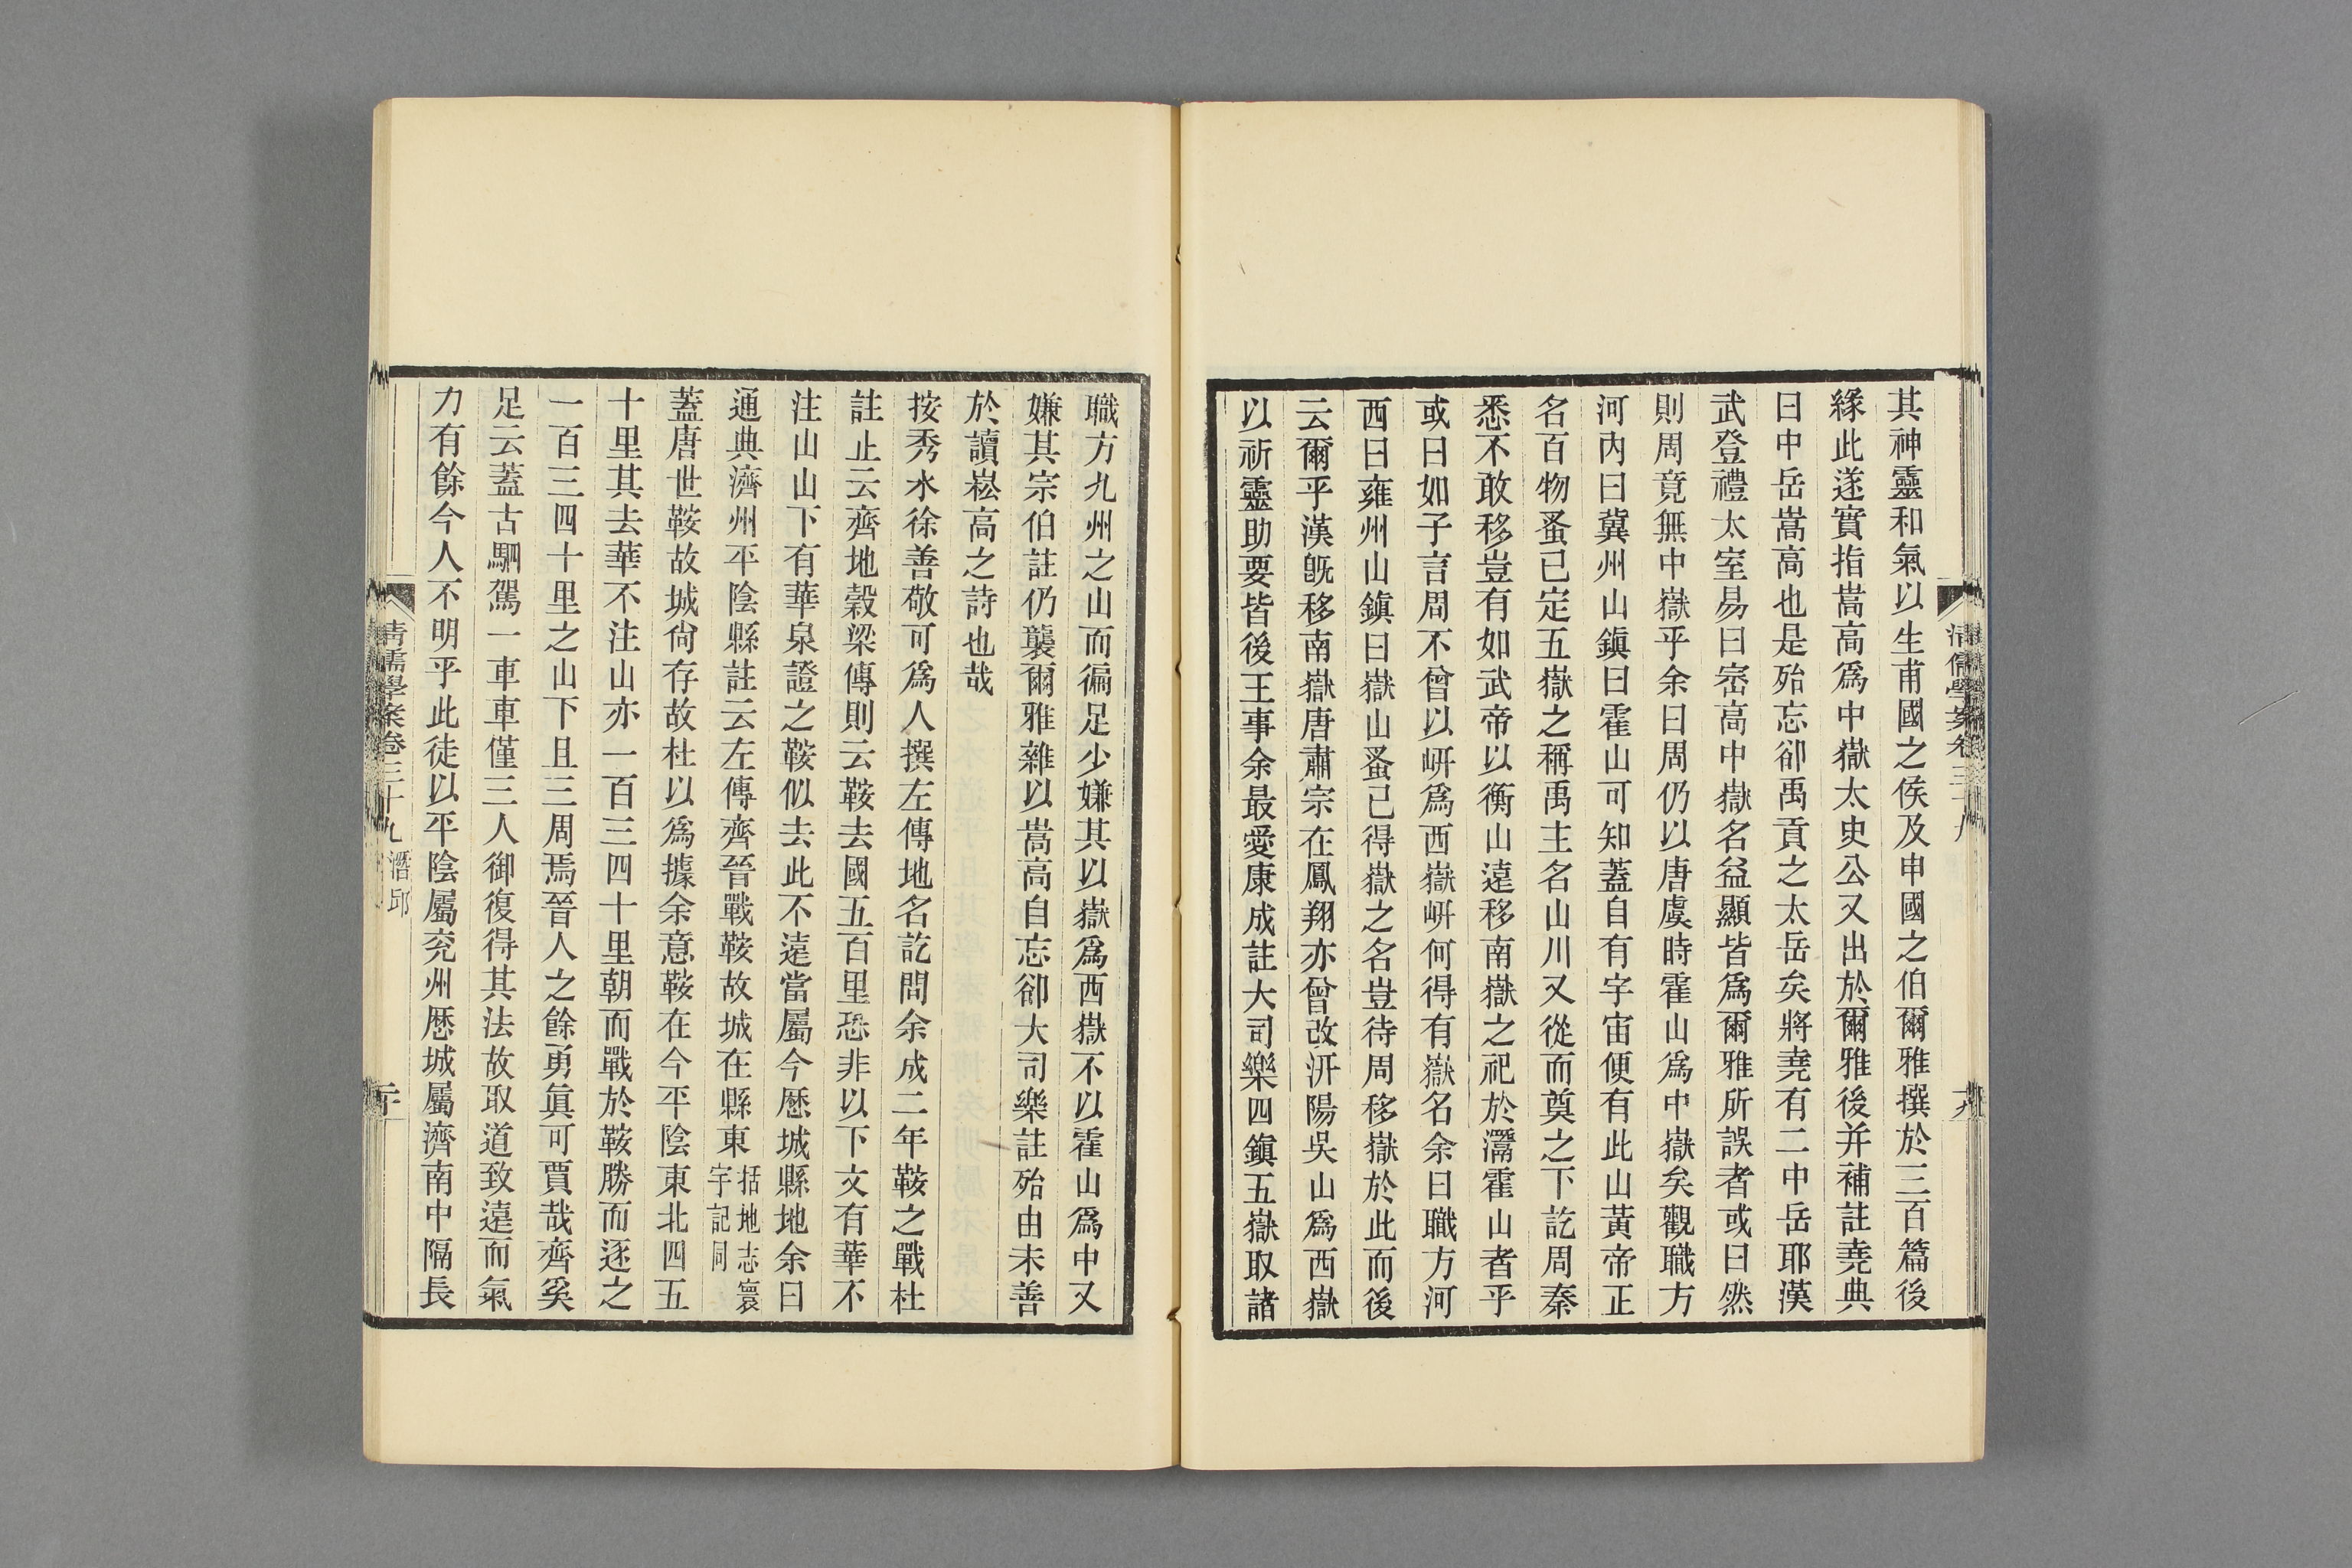 其神靈和氣以生甫國之侯及申國之伯爾雅撰於三百篇後
緣此遂實指嵩高爲中嶽太史公又出於爾雅後并補註堯典
曰中岳嵩高也是殆忘卻禹貢之太岳矣將堯有二中岳耶漢
武登禮太室易曰崈高中嶽名益顯皆爲爾雅所誤者或曰然
則周竟無中嶽乎余曰周仍以唐虞時霍山爲中嶽矣觀職方
河內曰冀州山鎮曰霍山可知蓋自有宇宙便有此山黃帝正
名百物蚤已定五嶽之稱禹主名山川又從而奠之下訖周秦
悉不敢移豈有如武帝以衡山遠移南嶽之祀於灊霍山者乎
或曰如子言周不曾以岍爲西嶽岍何得有嶽名余曰職方河
西曰雍州山鎮曰嶽山蚤已得嶽之名豈待周移嶽於此而後
云爾乎漢旣移南嶽唐肅宗在鳳翔亦曾改汧陽吳山爲西嶽
以祈靈助要皆後王事余最愛康成註大司樂四鎮五嶽取諸
清儒學案卷三十九
十九
職方九州之山而徧足少嫌其以嶽爲西嶽不以霍山爲中又
嫌其宗伯註仍襲爾雅雜以嵩高自忘卻大司樂註殆由未善
於讀崧高之詩也哉
按秀水徐善敬可爲人撰左傳地名訖問余成二年鞍之戰杜
註止云齊地穀梁傳則云鞍去國五百里恐非以下文有華不
注山山下有華泉證之鞍似去此不遠當屬今歷城縣地余曰
通典濟州平陰縣註云左傳齊晉戰鞍故城在縣東括地志寰
宇記同
蓋唐世鞍故城尙存故杜以爲據余意鞍在今平陰東北四五
十里其去華不注山亦一百三四十里朝而戰於鞍勝而逐之
一百三四十里之山下且三周焉晉人之餘勇眞可賈哉齊奚
足云蓋古駟駕一車車僅三人御復得其法故取道致遠而氣
力有餘今人不明乎此徒以平陰屬兖州歷城屬濟南中隔長
清儒學案卷三十九 潛邱
二十